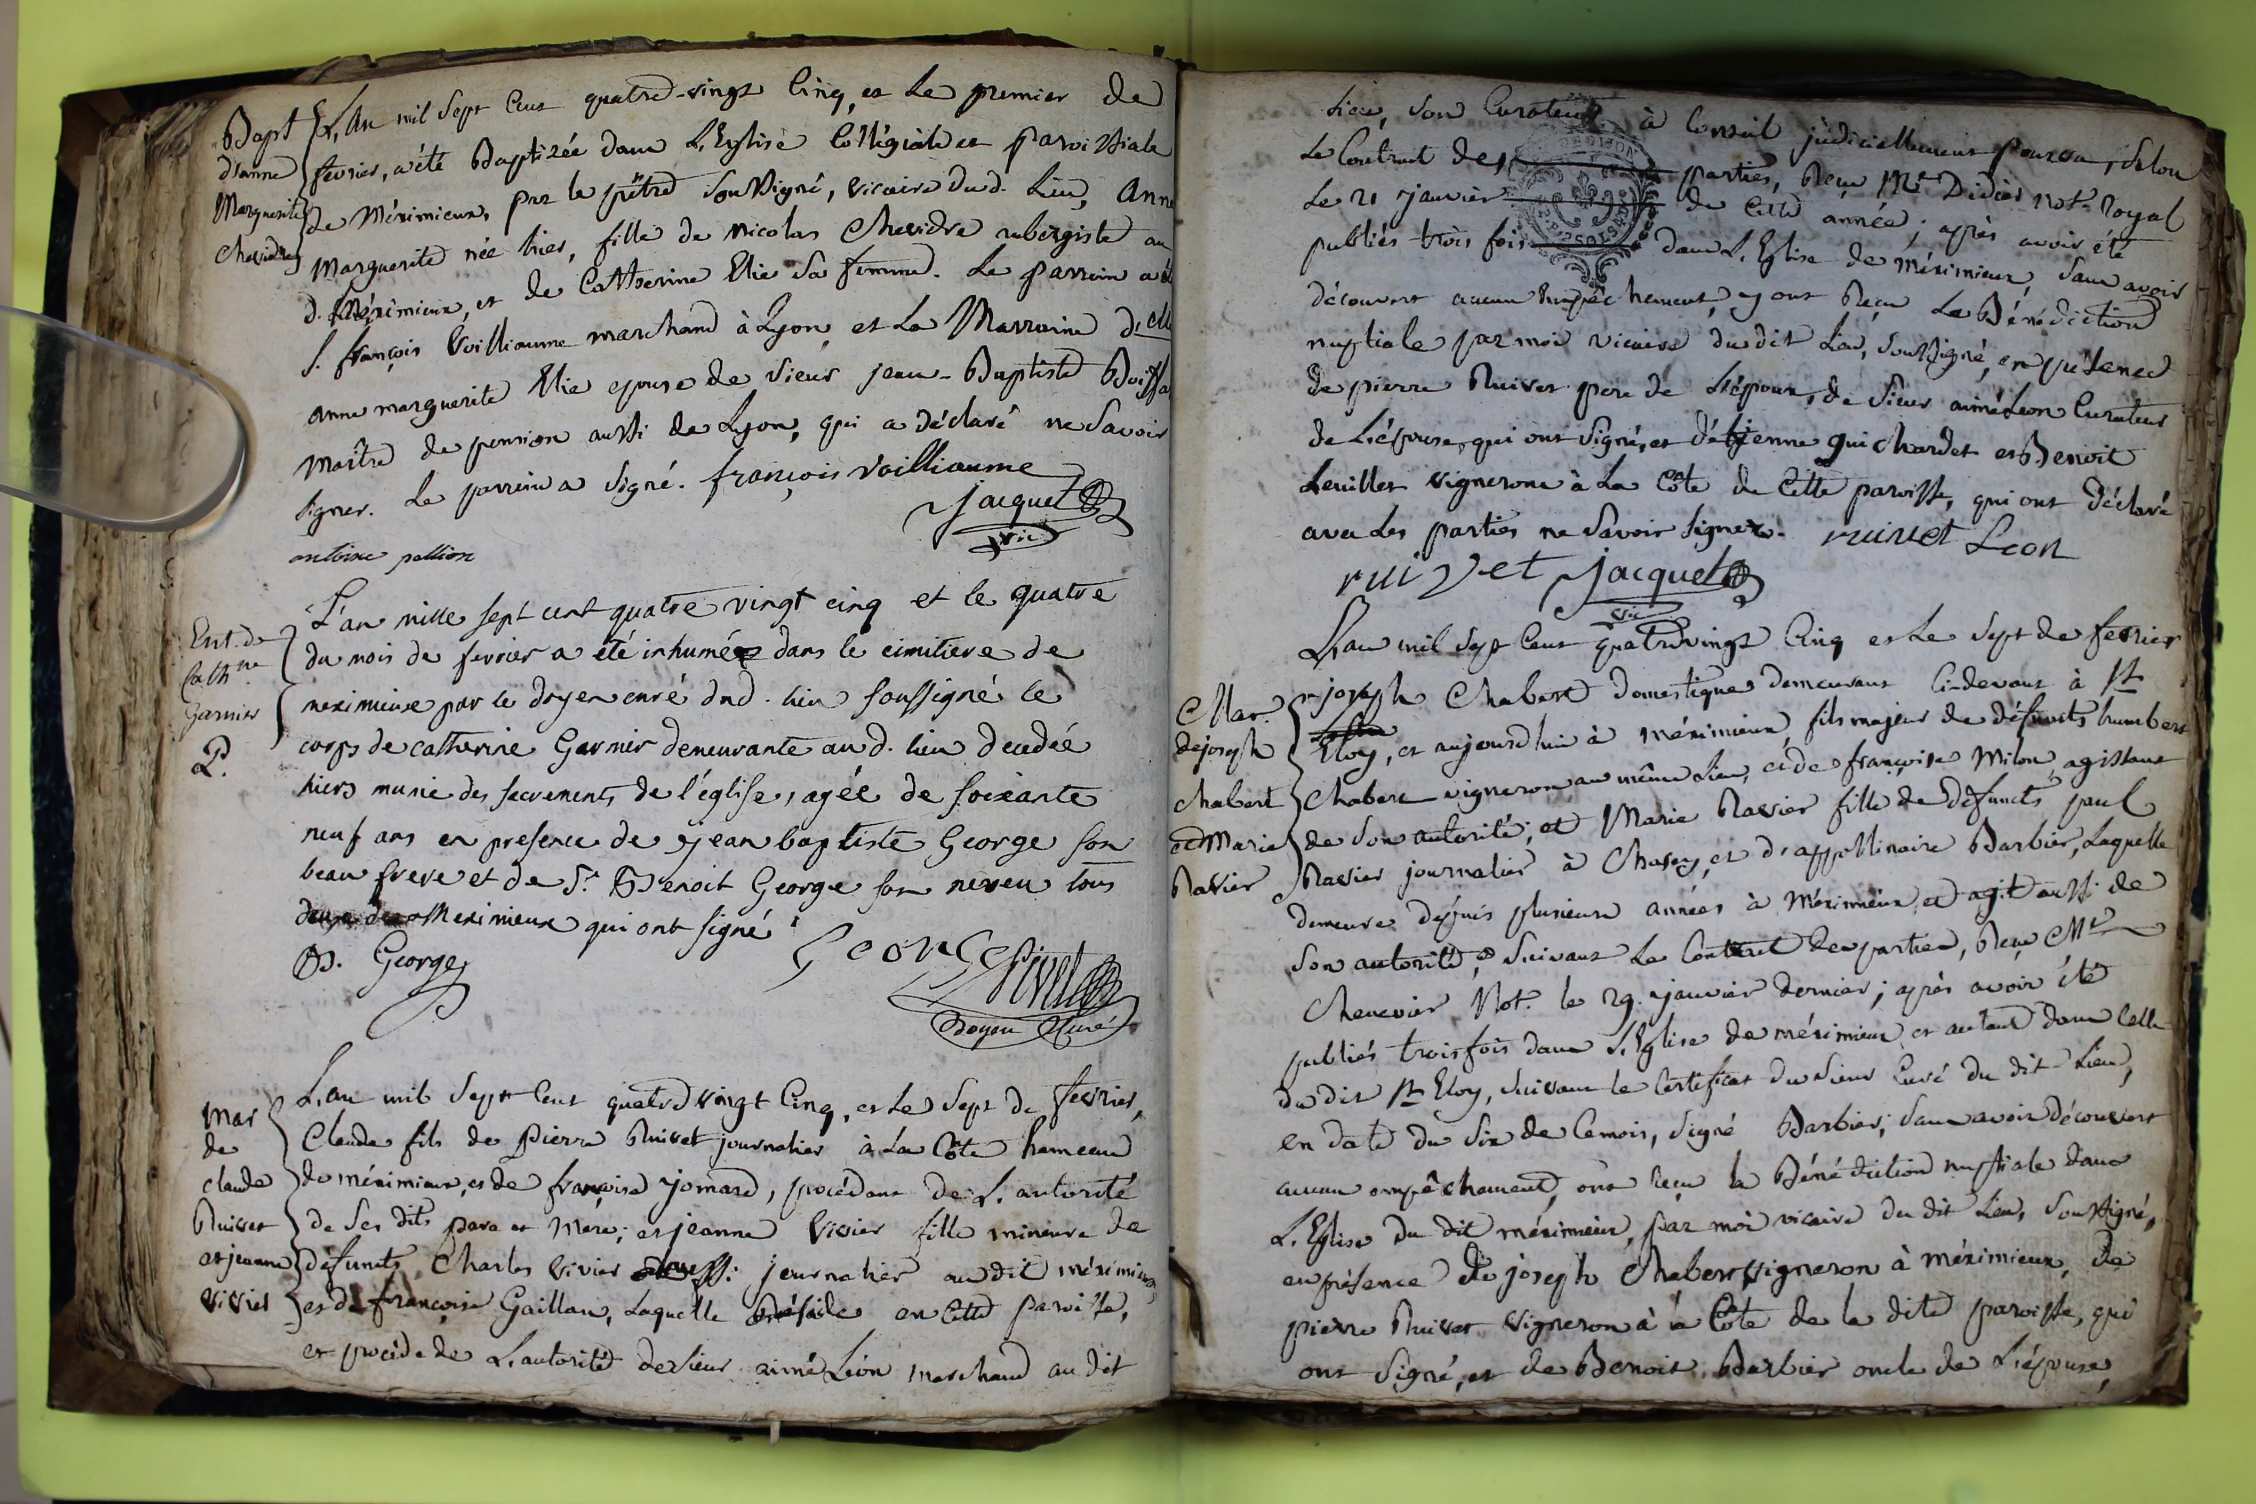 Bapt
d'anne
Marguerite
Chevidre
L'An mil Sept Cent quatre-vingt Cinq, et Le premier de
fevrier, a été Baptizée dans L'Eglise Collégiale et paroissiale
de Méximieux, par le pretre Soussigné, vicaire dud. Lieu, Anne
Marguerite née hier, fille de nicolas Chevidre aubergiste au
d. Méximieux, et de Catherine Elie Sa femme. Le parrain a été
S. françois Voilliaume marchand à Lyon, et La Marraine d.elle
anne marguerite Elie epouse de Sieur jean-Baptiste
Maître de pension aussi de Lyon, qui a déclaré ne Savoir
Signer. Le parrein a Signé. françois Voilliaume
Jacquet
vic.
antoine pellion
Ent. de
Cath.ne
Garnier
L'an mille sept cent quatre vingt cinq et le quatre
du mois de fevrier a été inhumée dans le cimitiere de
meximieux par le doyen curé dud. lieu soussigné le
corps de catherine Garnier demeurante aud. lieu decedée
hiers munie des sacrements de l'église, agée de soixante
neuf ans en presence de jean baptiste George son
beau frere et de Sr. Benoit George son neveu tous
deux de Meximieux qui ont signé
B. George
George
Doyen Curé
Mar
de
claude
Ruivet
et jeanne
vivier
L'an mil Sept Cent quatre vingt Cinq, et Le Sept de fevrier,
Claude fils de Pierre Ruivet journalier à La Côte hameau
de méximieux, et de françoise jomard, procédant de L'autorité
de Ses dits pere et Mere; et jeanne Vivier fille mineure de
défunts Charles Vivier aussi journalier au dit méximieux
et de françoise Gaillan, Laquelle Réside en Cette paroisse,
et procède de L'autorité de Sieur aimé Léon marchand au dit
Lieu, Son Curateur à Conseil judiciellement pourvu, Selon
Le Contract des parties, Reçu Mre Didier Not. Royal
Le 21 janvier de Cette année; après avoir été
publiés trois fois dans L'Eglise de méximieux, Sans avoir
découvert aucun Empêchement, y ont Reçu La Bénédiction
nuptiale par moi vicaire dudit Lieu, Soussigné, en présence
de pierre Ruivet pere de L'époux, de Sieur aimé Leon Curateur
de L'épouse, qui ont Signé, et d'étienne Guichardet et Benoit
Leuiller vignerons à La Côte de Cette paroisse, qui ont déclaré
avec Les parties ne Savoir Signer. ruivet Leon
ruivet Jacquet
vic
Mar.
de joseph
Chabert
et Marie
Ravier
L'an mil Sept Cent quatrevingt Cinq et Le Sept de fevrier
joseph Chabert domestique demeurant Ci-devant à St
Eloy, et aujourdhui à méximieux, fils majeur de défunts humbert
Chabert vigneron au même Lieu, et de françoise Milon, agissant
de Son autorité; et Marie Ravier fille de défunts paul
Ravier journalier à Chasey, et d'appollinaire Barbier, Laquelle
demeure dépuis plusieurs années à Méximieux et agit aussi de
Son autorité, Suivant Le Contract des parties, Reçu Mre
Chenevier Not. le 29. janvier dernier; après avoir été
publiés trois fois dans L'Eglise de méximieux et autant dans Celle
du dit St Eloy, Suivant le Certificat du Sieur Curé du dit Lieu,
en date du Six de Cemois, Signé Barbier, Sans avoir découvert
aucun empêchement, ont Reçu la Bénédiction nuptiale dans
L'Eglise du dit méximieux, par moi vicaire du dit Lieu, Soussigné,
en présence de joseph Chabert vigneron à méximieux, de
pierre Ruivet vigneron à la Côte de la dite paroisse, qui
ont Signé, et de Benoit Barbier oncle de L'épouse,